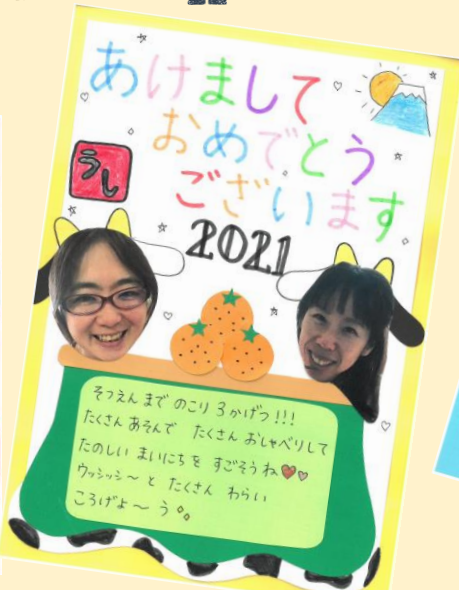 あけまして
おめでとう
ございます
うし
2021
そつえん まで のこり 3かげつ!!!
たくさん あそんで たくさん おしゃべりして
たのしい まいにちを すごそうね
ウッシッシ〜 と たくさん わらい
ころげよ〜う